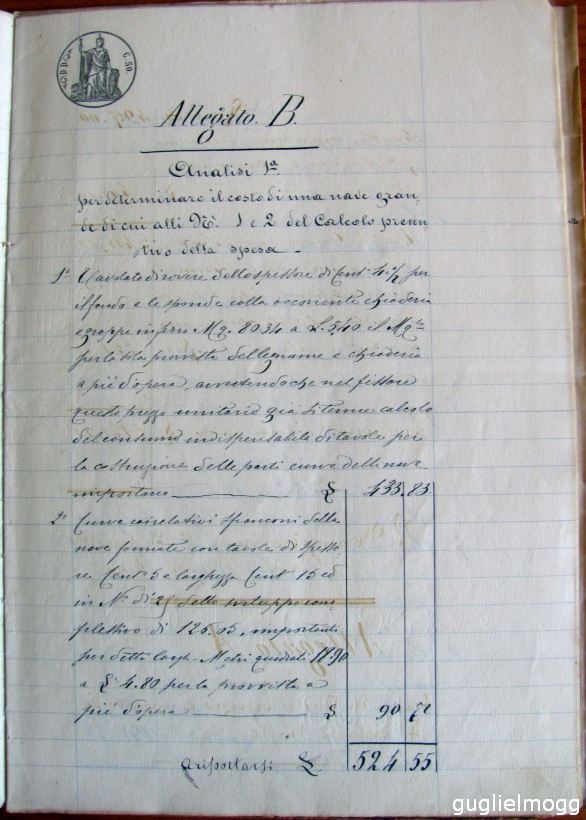 C. 50.
Allegato. B.
Analisi 1ª
per determinare il costo di una nave gran-
de di cui alli Nⁱ. 1 e 2 del Calcolo preven-
tivo della spesa -
1º Tavolato di rovere dello spessore di Cent 4 ½ per
il fondo e le sponde colla occorrente chioderia
e grappe in ferro Mq. 80.34 a L. 5,40 il Mq
per la sola provvista del legname e chioderia
a piè d'opera, avvertendo che nel fissare
questo prezzo unitario già si tenne calcolo
del consumo indispensabile di tavole per
la costruzione delle parti curve della nave
importano L 433.83
2º Curve coi relativi speroni della
nave formate con tavole di spesso-
re Cent 5 e larghezza Cent 15 ed
in Nº di 25 dello sviluppo com-
plessivo di 125.95, importanti
per detta largh. Metri quadrati 18.90
a L 4.80 per la provvista a
piè d'opera L 90 72
a riportarsi L 524 55
guglielmogg